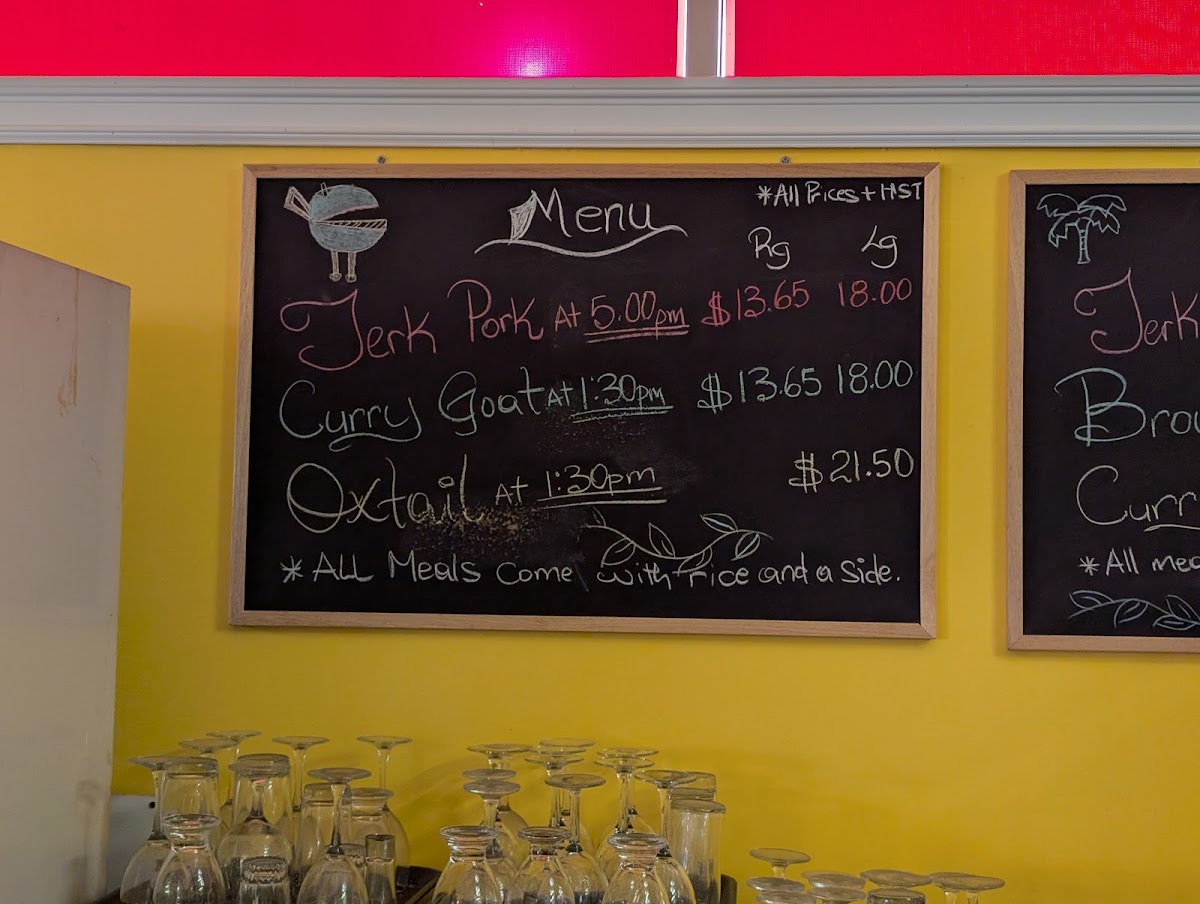 Menu
*All Prices + HST
Rg Lg
Jerk Pork At 5.00pm $13.65 18.00
Curry Goat At 1:30pm $13.65 18.00
Oxtail At 1:30pm $21.50
*ALL Meals come with rice and a side.
Jerk
Brow
Curr
*All mea